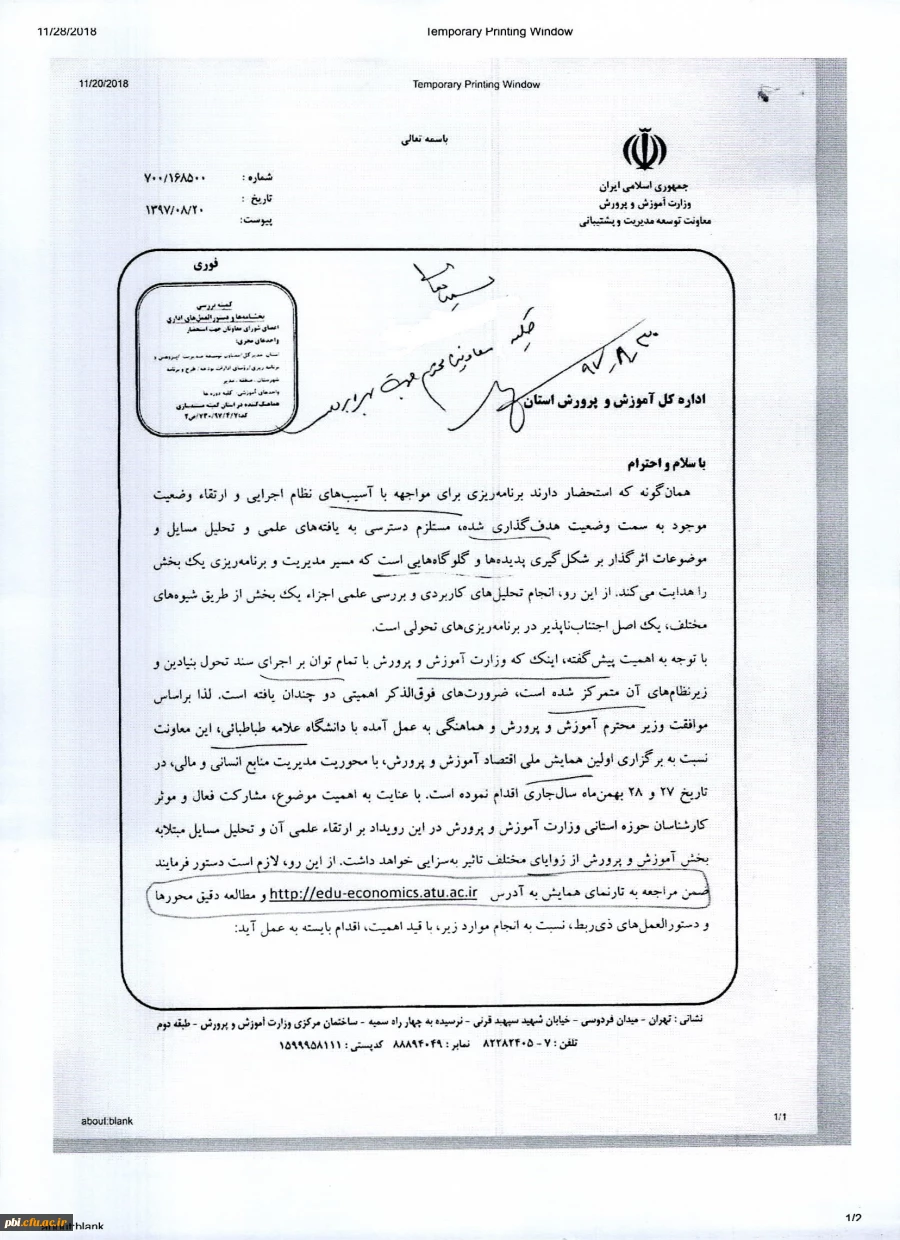 11/28/2018 Temporary Printing Window
11/20/2018 Temporary Printing Window
باسمه تعالی
جمهوری اسلامی ایران
وزارت آموزش و پرورش
معاونت توسعه مدیریت و پشتیبانی
شماره : ۷۰۰/۱۶۸۵۰۰
تاریخ : ۱۳۹۷/۰۸/۲۰
پیوست:
فوری
کمیته بررسی
بخشنامه‌ها و دستورالعمل‌های اداری
اعضای شورای معاونان جهت استحضار
واحدهای مجری:
برنامه ریزی / روسای ادارات بودجه / طرح و برنامه
شهرستان، منطقه : مدیر
واحدهای آموزشی: کلیه دوره ها
هماهنگ‌کننده در استان کمیته مستندسازی
کد:۷۳۰/۹۷/۴/۷/ص۲
کلیه معاونین محترم جهت بهره برداری
۹۷-۸-۳۰
اداره کل آموزش و پرورش استان
با سلام و احترام
همان‌گونه که استحضار دارند برنامه‌ریزی برای مواجهه با آسیب‌های نظام اجرایی و ارتقاء وضعیت
موجود به سمت وضعیت هدف‌گذاری شده، مستلزم دسترسی به یافته‌های علمی و تحلیل مسایل و
موضوعات اثرگذار بر شکل‌گیری پدیده‌ها و گلوگاه‌هایی است که مسیر مدیریت و برنامه‌ریزی یک بخش
را هدایت می‌کند. از این رو، انجام تحلیل‌های کاربردی و بررسی علمی اجزاء یک بخش از طریق شیوه‌های
مختلف، یک اصل اجتناب‌ناپذیر در برنامه‌ریزی‌های تحولی است.
با توجه به اهمیت پیش‌گفته، اینک که وزارت آموزش و پرورش با تمام توان بر اجرای سند تحول بنیادین و
زیرنظام‌های آن متمرکز شده است، ضرورت‌های فوق‌الذکر اهمیتی دو چندان یافته است. لذا براساس
موافقت وزیر محترم آموزش و پرورش و هماهنگی به عمل آمده با دانشگاه علامه طباطبائی، این معاونت
نسبت به برگزاری اولین همایش ملی اقتصاد آموزش و پرورش، با محوریت مدیریت منابع انسانی و مالی، در
تاریخ ۲۷ و ۲۸ بهمن‌ماه سال‌جاری اقدام نموده است. با عنایت به اهمیت موضوع، مشارکت فعال و موثر
کارشناسان حوزه استانی وزارت آموزش و پرورش در این رویداد بر ارتقاء علمی آن و تحلیل مسایل مبتلابه
بخش آموزش و پرورش از زوایای مختلف تاثیر به‌سزایی خواهد داشت. از این رو، لازم است دستور فرمایند
ضمن مراجعه به تارنمای همایش به آدرس http://edu-economics.atu.ac.ir و مطالعه دقیق محورها
و دستورالعمل‌های ذی‌ربط، نسبت به انجام موارد زیر، با قید اهمیت، اقدام بایسته به عمل آید:
نشانی : تهران - میدان فردوسی - خیابان شهید سپهبد قرنی - نرسیده به چهار راه سمیه - ساختمان مرکزی وزارت آموزش و پرورش - طبقه دوم
تلفن : ۷ - ۸۲۲۸۲۴۰۵ نمابر : ۸۸۸۹۴۰۴۹ کدپستی : ۱۵۹۹۹۵۸۱۱۱
about:blank 1/1
about:blank 1/2
pbi.cfu.ac.ir